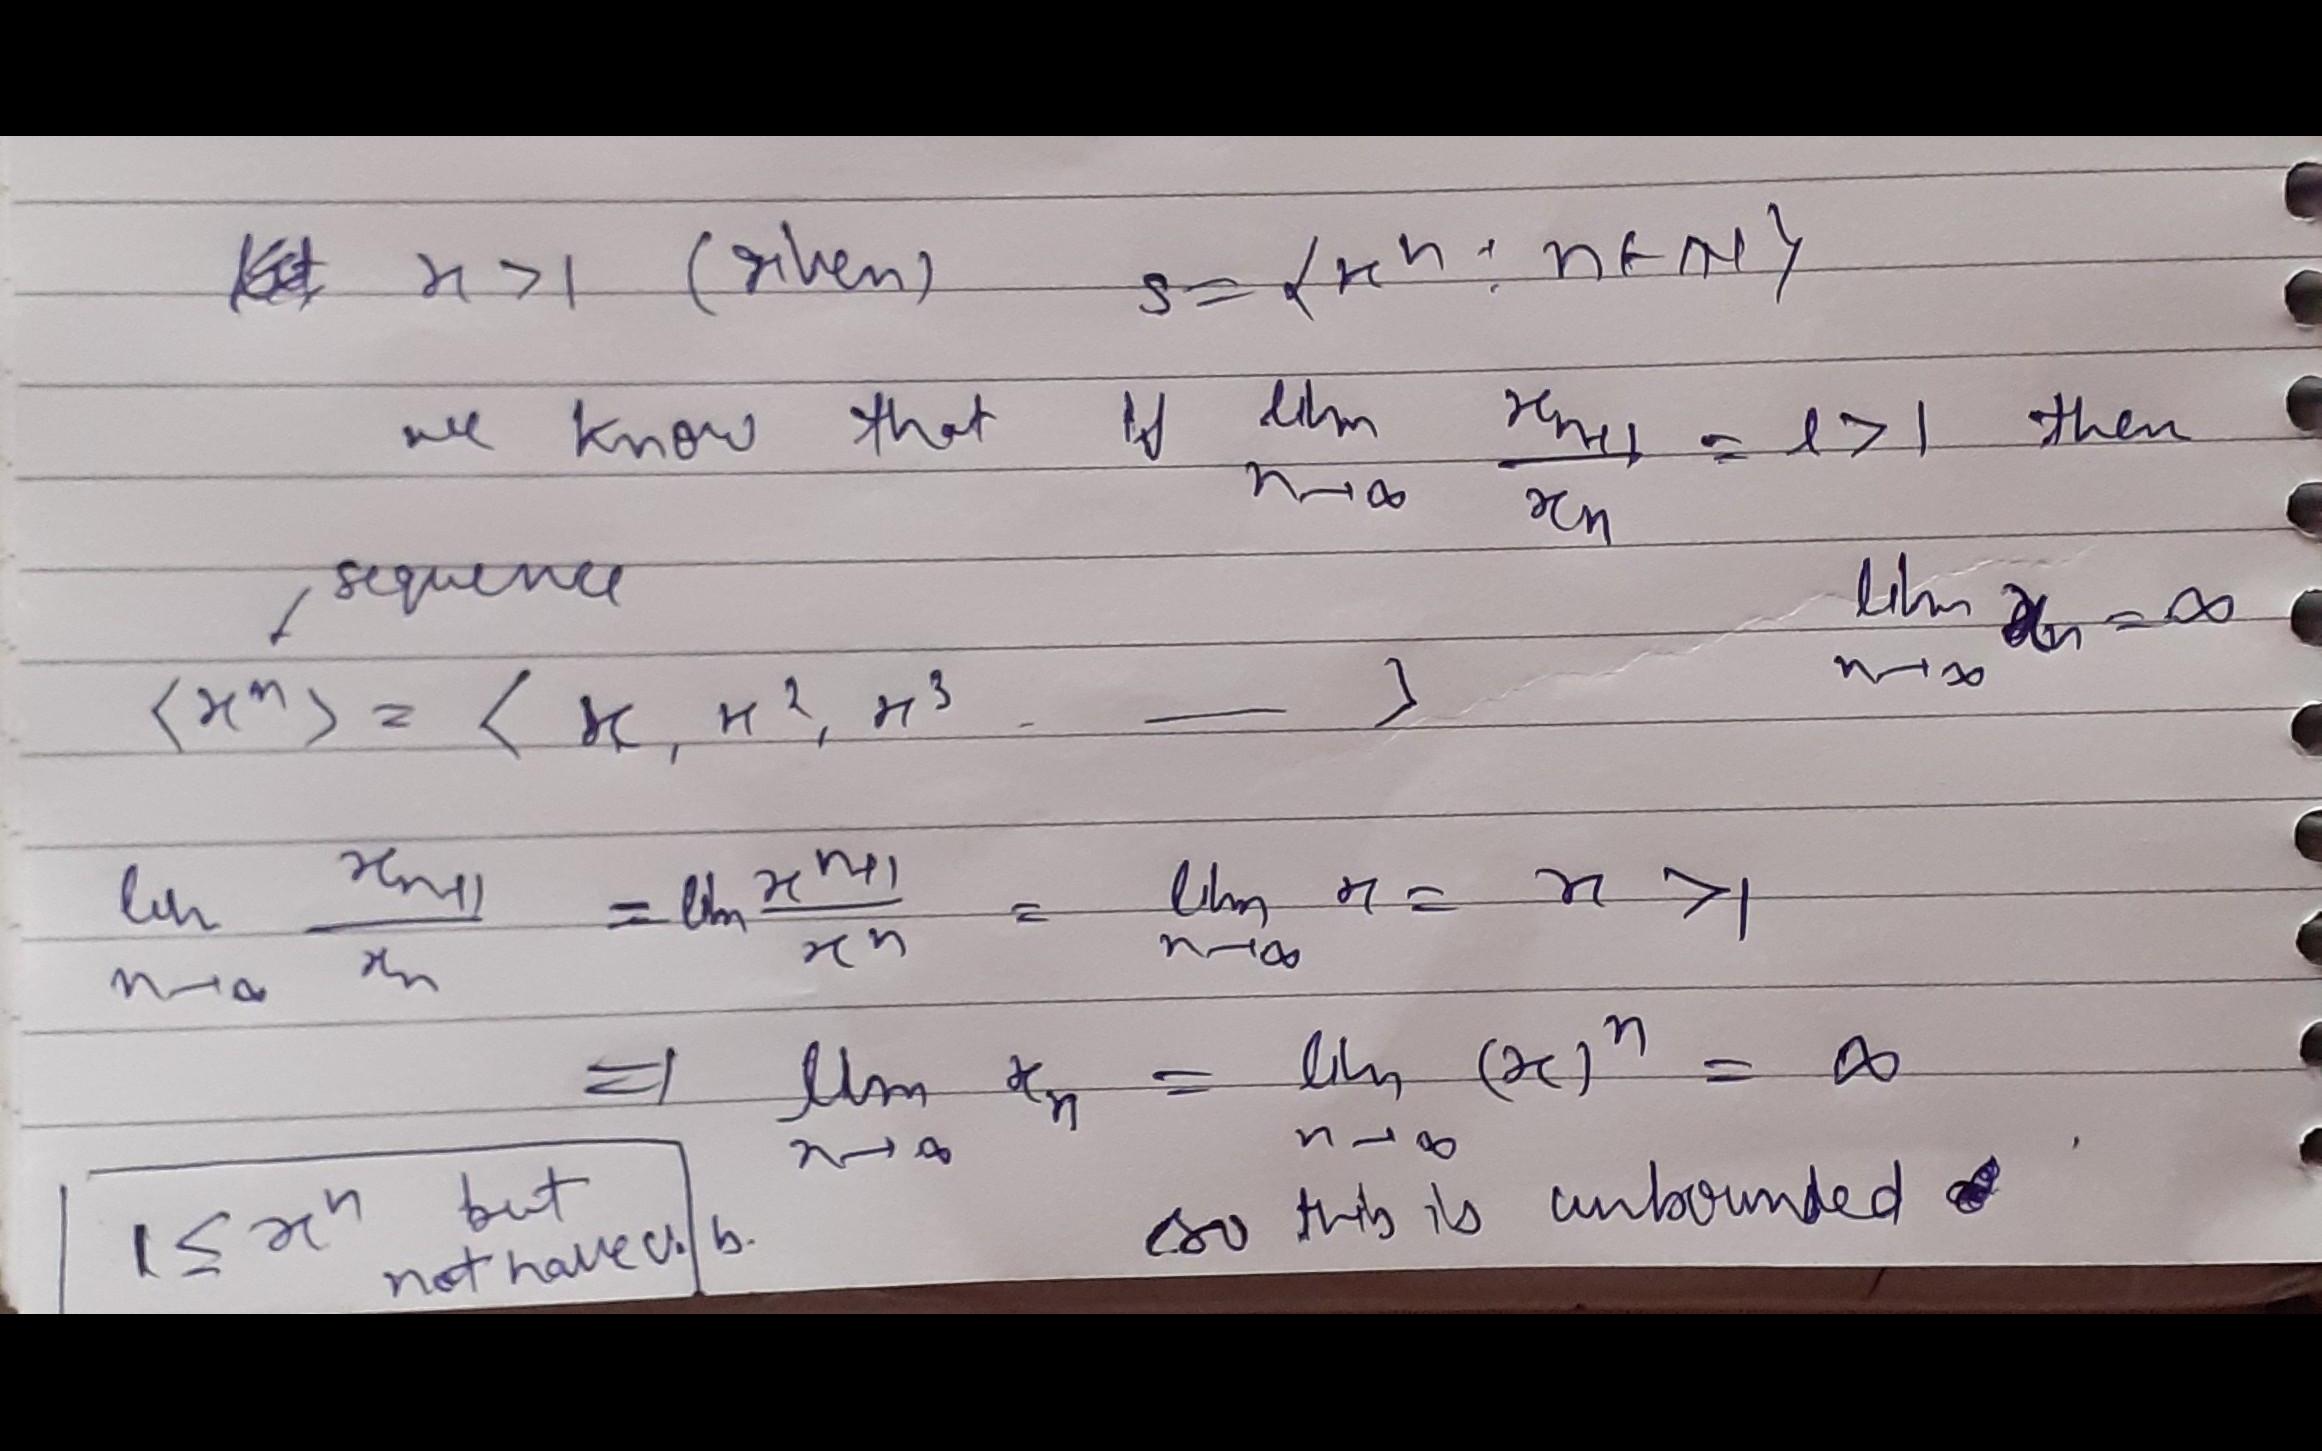 x > 1 (given) S = {xⁿ : n ∈ ℕ}
we know that if lim n→∞ xₙ₊₁ / xₙ = l > 1 then
lim n→∞ xₙ = ∞
sequence
⟨xⁿ⟩ = ⟨ x, x², x³ . — ⟩
lim n→∞ xₙ₊₁ / xₙ = lim xⁿ⁺¹ / xⁿ = lim n→∞ x = x > 1
⇒ lim n→∞ xₙ = lim n→∞ (x)ⁿ = ∞
1 ≤ xⁿ but
not have u.b.
so this is unbounded